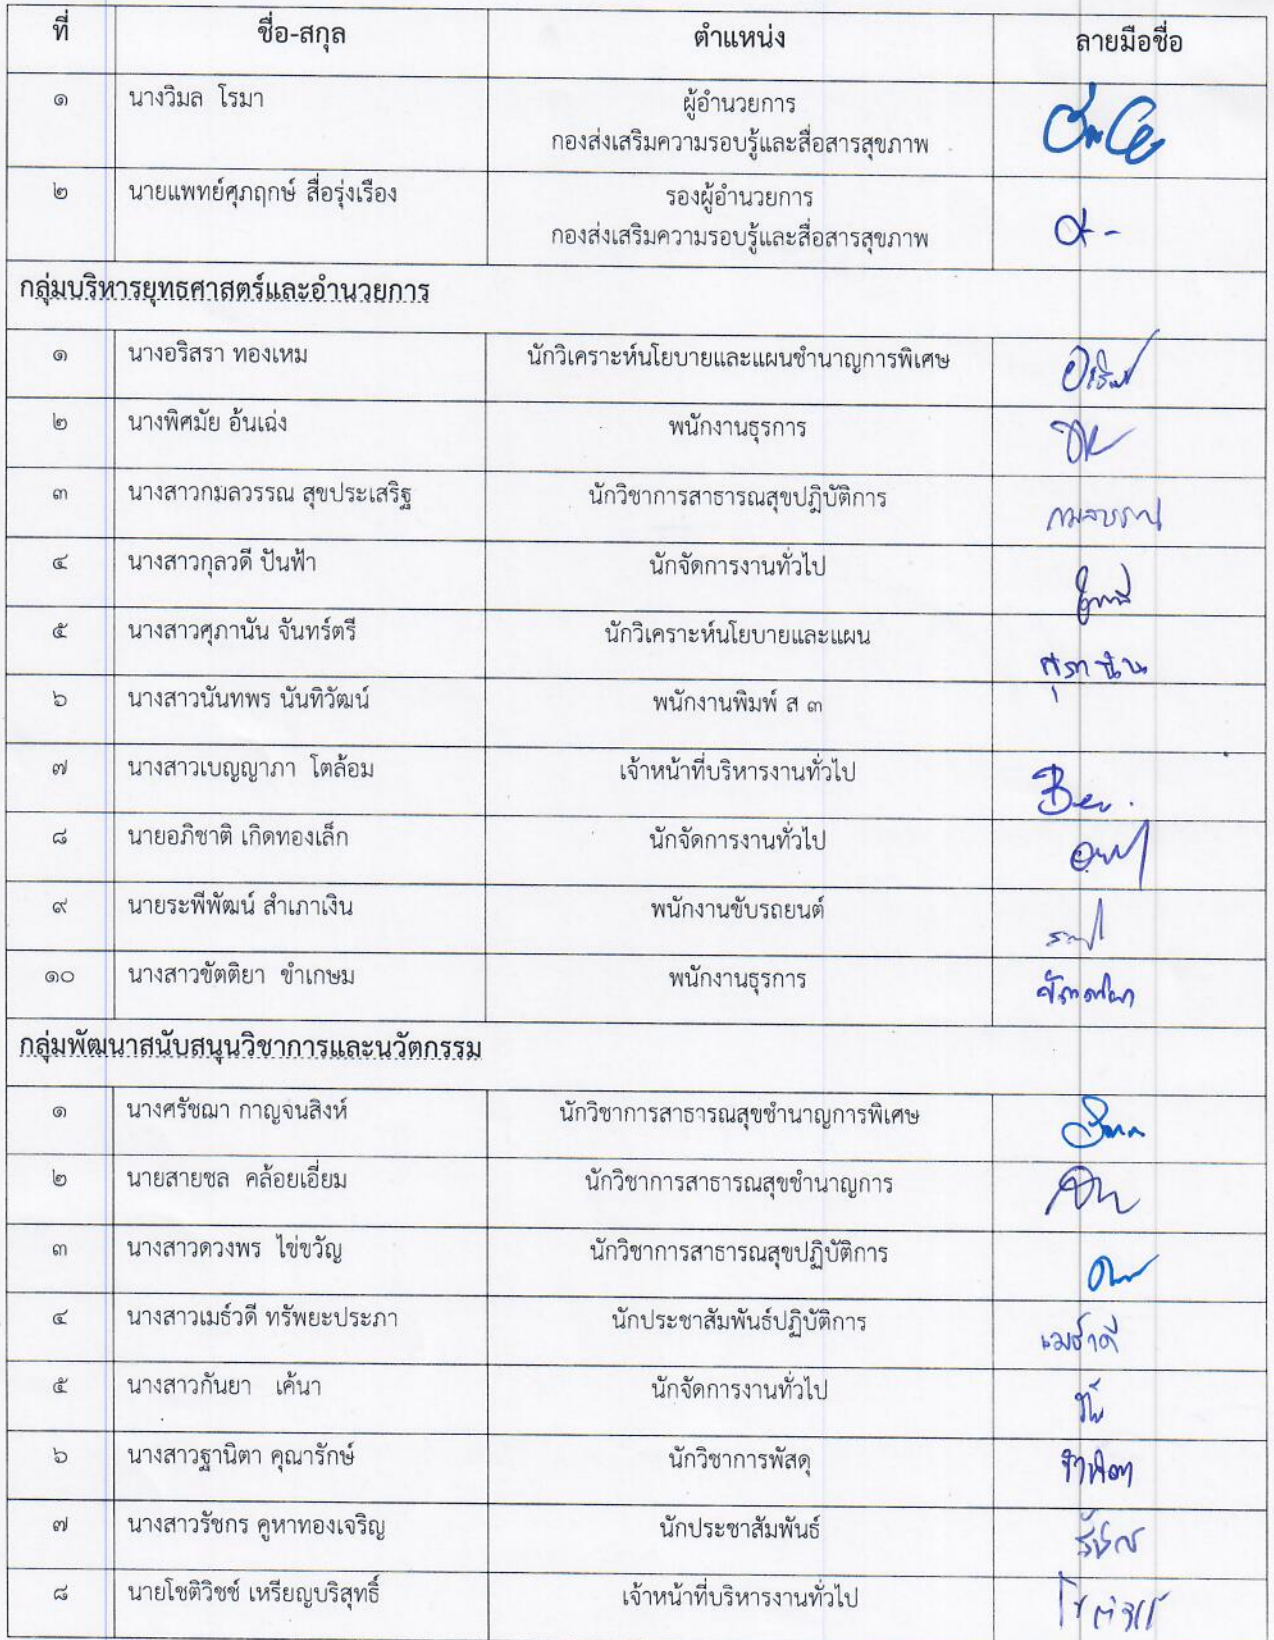 ที่ ชื่อ-สกุล ตำแหน่ง ลายมือชื่อ
๑ นางวิมล โรมา ผู้อำนวยการ
กองส่งเสริมความรอบรู้และสื่อสารสุขภาพ
๒ นายแพทย์ศุภฤกษ์ สื่อรุ่งเรือง รองผู้อำนวยการ
กองส่งเสริมความรอบรู้และสื่อสารสุขภาพ
กลุ่มบริหารยุทธศาสตร์และอำนวยการ
๑ นางอริสรา ทองเหม นักวิเคราะห์นโยบายและแผนชำนาญการพิเศษ
๒ นางพิศมัย อ้นเฉ่ง พนักงานธุรการ
๓ นางสาวกมลวรรณ สุขประเสริฐ นักวิชาการสาธารณสุขปฏิบัติการ กมลวรรณ
๔ นางสาวกุลวดี ปันฟ้า นักจัดการงานทั่วไป
๕ นางสาวศุภานัน จันทร์ตรี นักวิเคราะห์นโยบายและแผน ศุภานัน
๖ นางสาวนันทพร นันทิวัฒน์ พนักงานพิมพ์ ส ๓
๗ นางสาวเบญญาภา โตล้อม เจ้าหน้าที่บริหารงานทั่วไป
๘ นายอภิชาติ เกิดทองเล็ก นักจัดการงานทั่วไป
๙ นายระพีพัฒน์ สำเภาเงิน พนักงานขับรถยนต์
๑๐ นางสาวขัตติยา ขำเกษม พนักงานธุรการ ขัตติยา
กลุ่มพัฒนาสนับสนุนวิชาการและนวัตกรรม
๑ นางศรัชฌา กาญจนสิงห์ นักวิชาการสาธารณสุขชำนาญการพิเศษ
๒ นายสายชล คล้อยเอี่ยม นักวิชาการสาธารณสุขชำนาญการ
๓ นางสาวดวงพร ไข่ขวัญ นักวิชาการสาธารณสุขปฏิบัติการ
๔ นางสาวเมธ์วดี ทรัพยะประภา นักประชาสัมพันธ์ปฏิบัติการ เมธ์วดี
๕ นางสาวกันยา เค้นา นักจัดการงานทั่วไป
๖ นางสาวฐานิตา คุณารักษ์ นักวิชาการพัสดุ ฐานิตา
๗ นางสาวรัชกร คูหาทองเจริญ นักประชาสัมพันธ์ รัชกร
๘ นายโชติวิชช์ เหรียญบริสุทธิ์ เจ้าหน้าที่บริหารงานทั่วไป